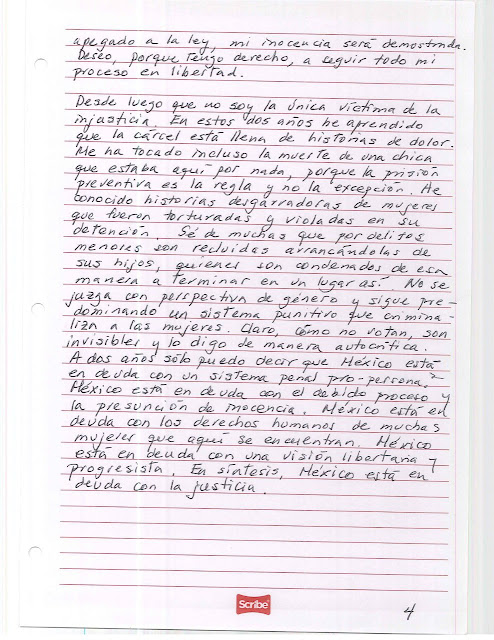 apegado a la ley, mi inocencia será demostrada.
Deseo, porque tengo derecho, a seguir todo mi
proceso en libertad.
Desde luego que no soy la única víctima de la
injusticia. En estos dos años he aprendido
que la cárcel está llena de historias de dolor.
Me ha tocado incluso la muerte de una chica
que estaba aquí por nada, porque la prisión
preventiva es la regla y no la excepción. He
conocido historias desgarradoras de mujeres
que fueron torturadas y violadas en su
detención. Sé de muchas que por delitos
menores son recluidas arrancándolas de
sus hijos, quienes son condenados de esa
manera a terminar en un lugar así. No se
juzga con perspectiva de género y sigue pre-
dominando un sistema punitivo que crimina-
liza a las mujeres. Claro, cómo no votan, son
invisibles y lo digo de manera autocrítica.
A dos años sólo puedo decir que México está
en deuda con un sistema penal pro-persona,
México está en deuda con el debido proceso y
la presunción de inocencia. México está en
deuda con los derechos humanos de muchas
mujeres que aquí se encuentran. México
está en deuda con una visión libertaria y
progresista. En síntesis, México está en
deuda con la justicia.
Scribe
4